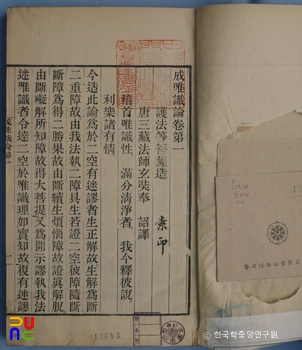 成唯識論卷第一
護法等菩薩造
唐三藏法師玄奘奉 詔譯
稽首唯識性 滿分清淨者 我今釋彼說
利樂諸有情
今造此論爲於二空有迷謬者生正解故生解爲斷
二重障故由我法執二障具生若證二空彼障隨斷
斷障爲得二勝果故由斷續生煩惱障故證眞解脫
由斷礙解所知障故得大菩提又爲開示謬執我法
迷唯識者令達二空於唯識理如實知故復有迷謬
13683
한국학중앙연구원